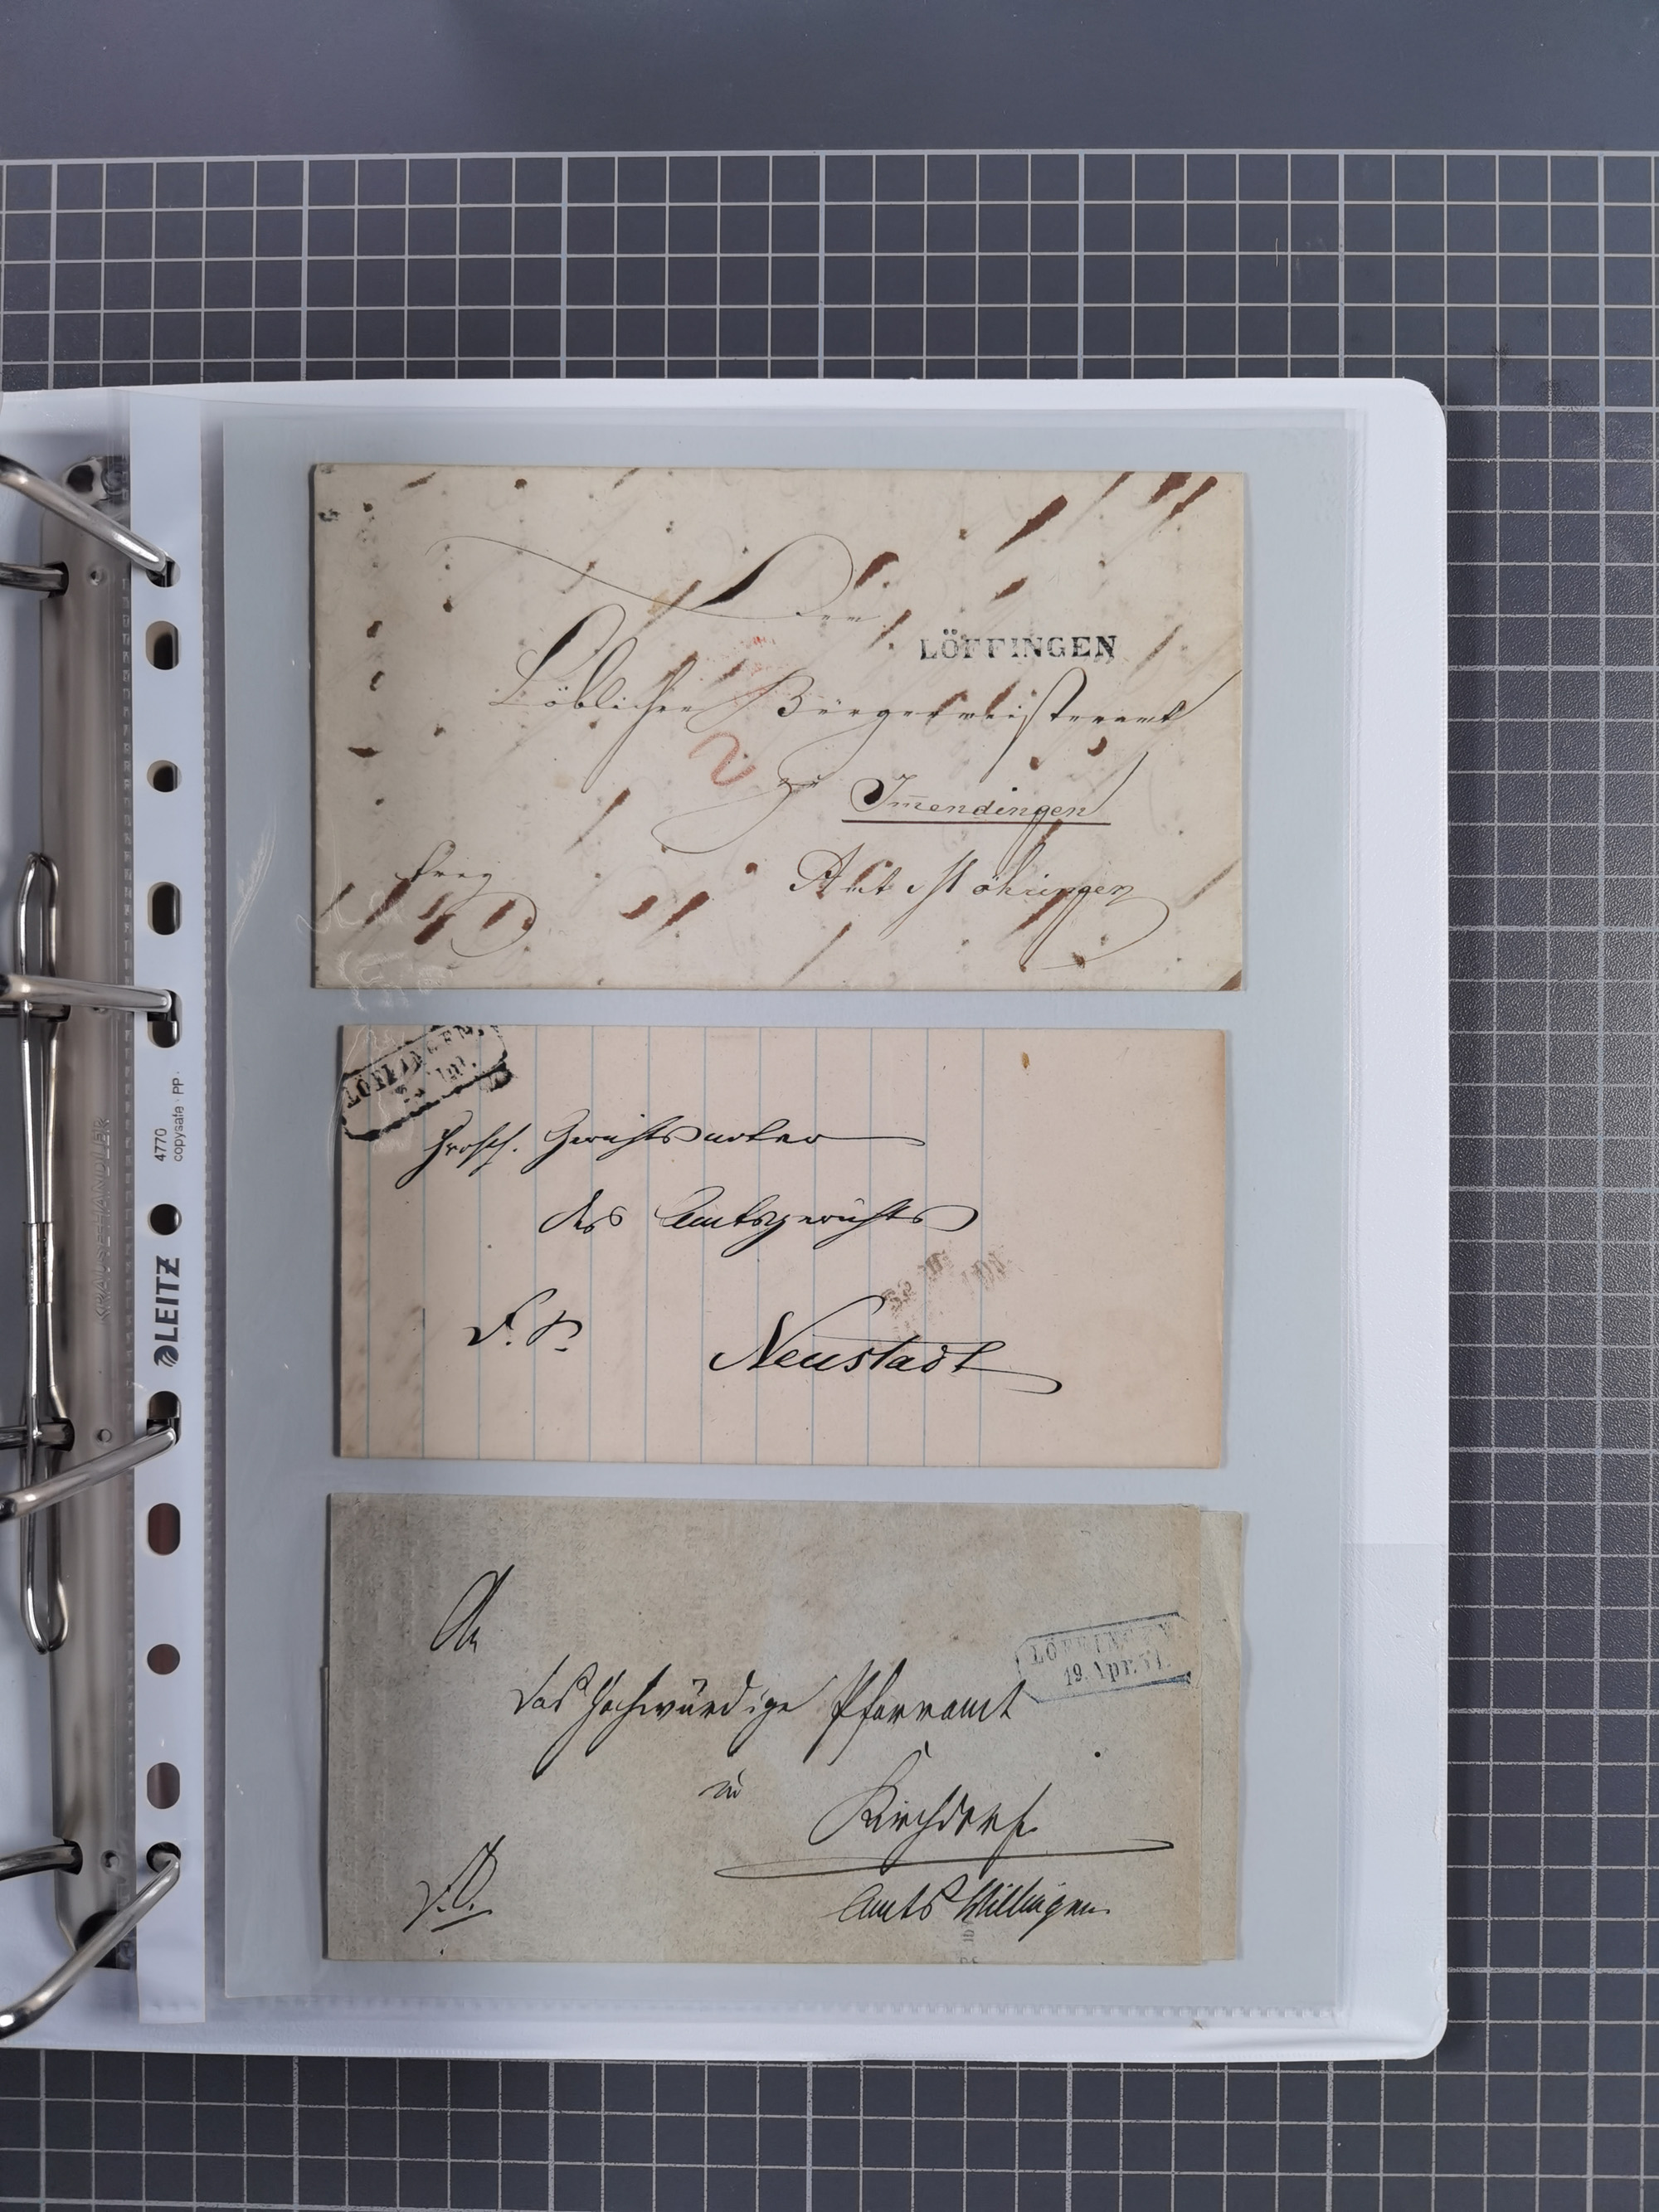 Dem
LÖFFINGEN
Löblichen Bürgermeisteramt
2
zu Im̅endingen
frey
Amt Möhringen
LÖFFINGEN
Grosh. Gerichtsnotar
des Amtsgerichts
D. S.
Neustadt
An
LÖFFINGEN
19. Apr. 51.
das hochwürdige Pfarramt
in
Kirchdorf
Amts Villingen
D. S.
4770
copysafe · PP ·
LEITZ
KRAUSEHÄNDLER